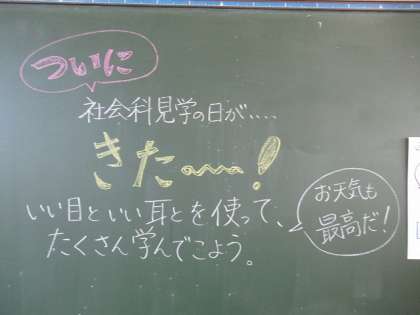 ついに
社会科見学の日が‥‥
きた〜〜!
いい目といい耳とを使って、
たくさん学んでこよう。
お天気も
最高だ!